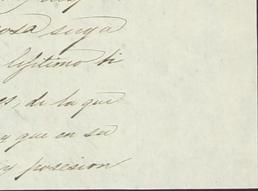 osa suya
lejitimo ti
es, de la que
y que en su
y posesion